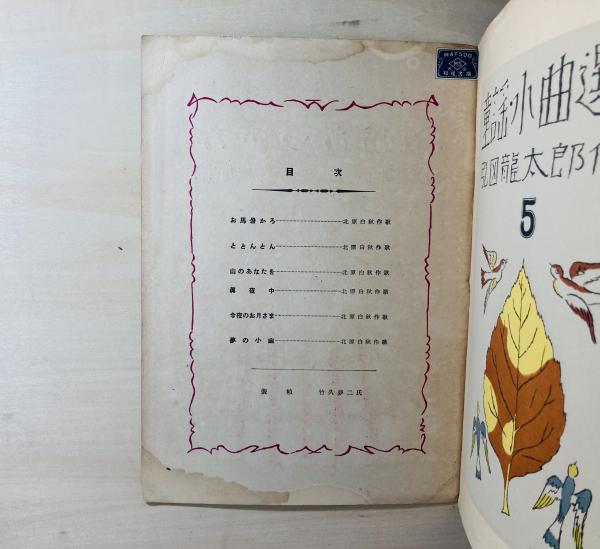 MATSUO
目次
お馬暑かろ 北原白秋作歌
ととんとん 北原白秋作歌
山のあなたを 北原白秋作歌
眞夜中 北原白秋作歌
今夜のお月さま 北原白秋作歌
夢の小函 北原白秋作歌
裝幀 竹久夢二氏
童謠・小曲選
弘田龍太郎作
5